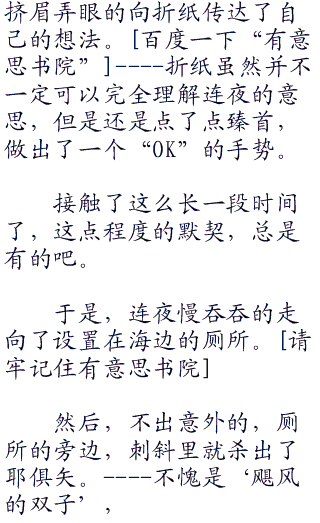 挤眉弄眼的向折纸传达了自
己的想法。[百度一下“有意
思书院”]----折纸虽然并不
一定可以完全理解连夜的意
思，但是还是点了点臻首，
做出了一个“OK”的手势。
接触了这么长一段时间
了，这点程度的默契，总是
有的吧。
于是，连夜慢吞吞的走
向了设置在海边的厕所。[请
牢记住有意思书院]
然后，不出意外的，厕
所的旁边，刺斜里就杀出了
耶俱矢。----不愧是‘飓风
的双子’，